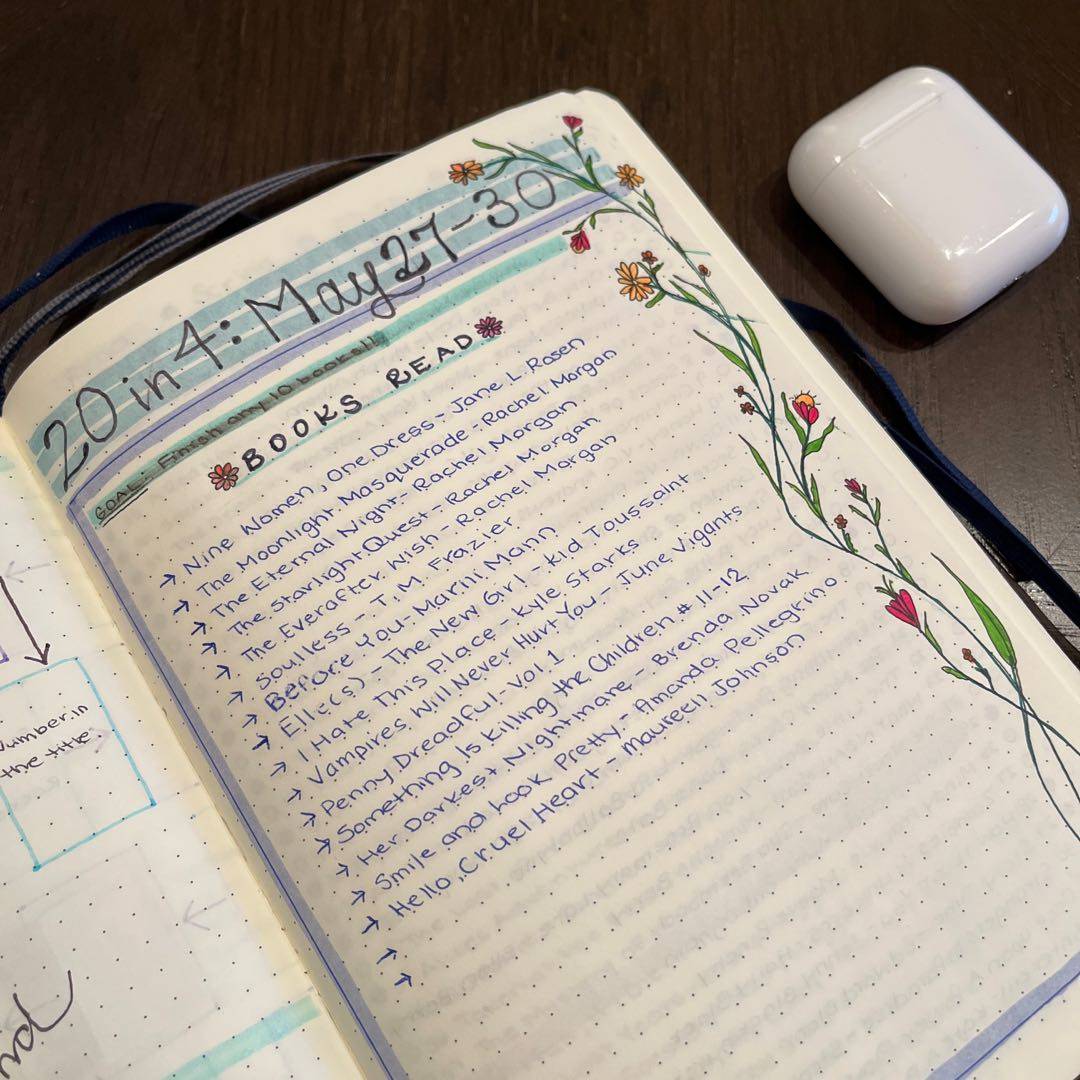 20 in 4: May 27-30
GOAL: Finish any 10 books!!
BOOKS READ
→ Nine Women, One Dress - Jane L. Rosen
→ The Moonlight Masquerade - Rachel Morgan
→ The Eternal Night - Rachel Morgan
→ The Starlight Quest - Rachel Morgan
→ The Everafter Wish - Rachel Morgan
→ Soulless - T. M. Frazier
→ Before You - Marni Mann
→ Elle(s) - The New Girl - Kid Toussaint
→ I Hate This Place - Kyle Starks
→ Vampires Will Never Hurt You - June Vigants
→ Penny Dreadful - Vol 1
→ Something Is Killing the Children # 11-12
→ Her Darkest Nightmare - Brenda Novak
→ Smile and Look Pretty - Amanda Pellegrino
→ Hello, Cruel Heart - Maureen Johnson
→
→
Number in
the title